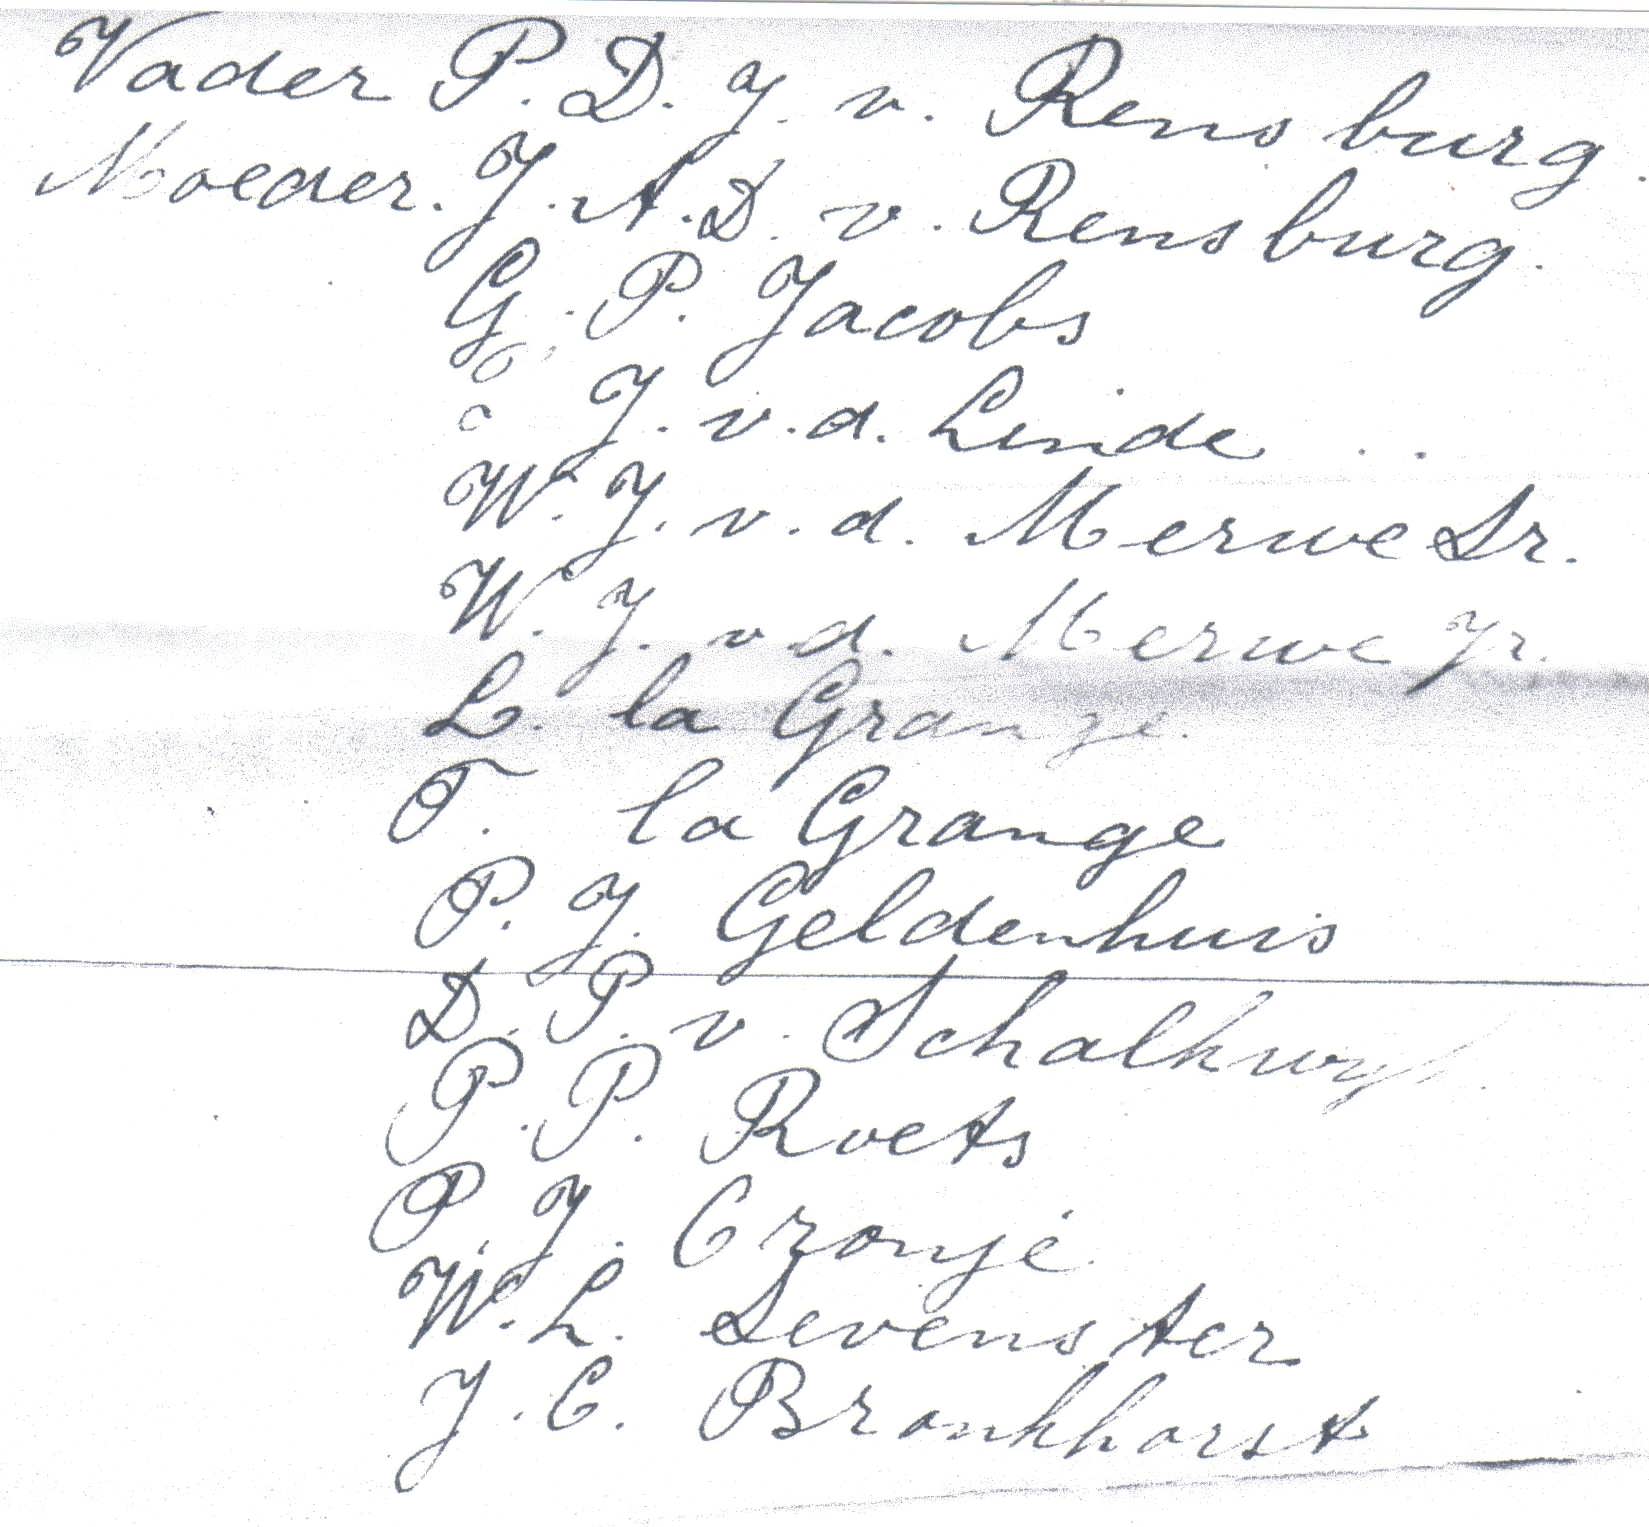 Vader P. D. J. v. Rensburg.
Moeder. J. A. D. v. Rensburg.
G. P. Jacobs
J. v. d. Linde
W. J. v. d. Merwe Sr.
W. J. v. d. Merwe Jr.
L. la Grange
T. la Grange
P. J. Geldenhuis
D. P. v. Schalkwyk.
P. P. Roets
P. J. Cronjé
W. L. Devenster
J. C. Bronkhorst